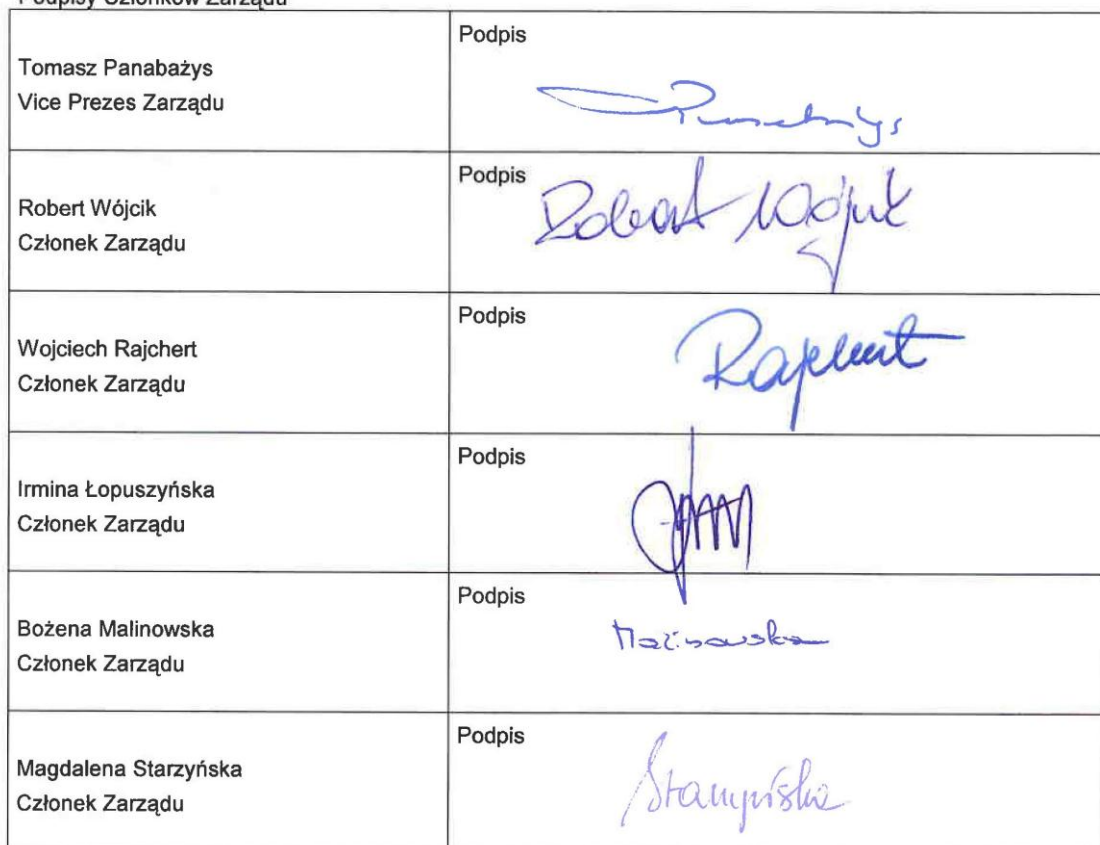 Podpisy Członków Zarządu
Tomasz Panabażys
Vice Prezes Zarządu
Podpis
Robert Wójcik
Członek Zarządu
Podpis
Robert Wójcik
Wojciech Rajchert
Członek Zarządu
Podpis
Rajchert
Irmina Łopuszyńska
Członek Zarządu
Podpis
Bożena Malinowska
Członek Zarządu
Podpis
Malinowska
Magdalena Starzyńska
Członek Zarządu
Podpis
Starzyńska